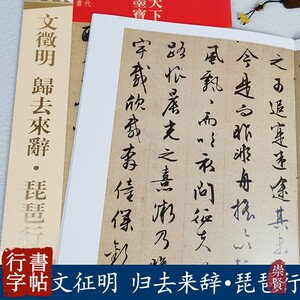 天下
墨寶
文徵明 歸去來辭·琵琶行
之可追寔迷途其
今是而昨非舟搖搖以
風飄飄而吹衣問征
路恨晨光之熹微乃
宇載欣載奔僮僕歡
行書
字帖
文征明 归去来辞·琵琶行
崇賢